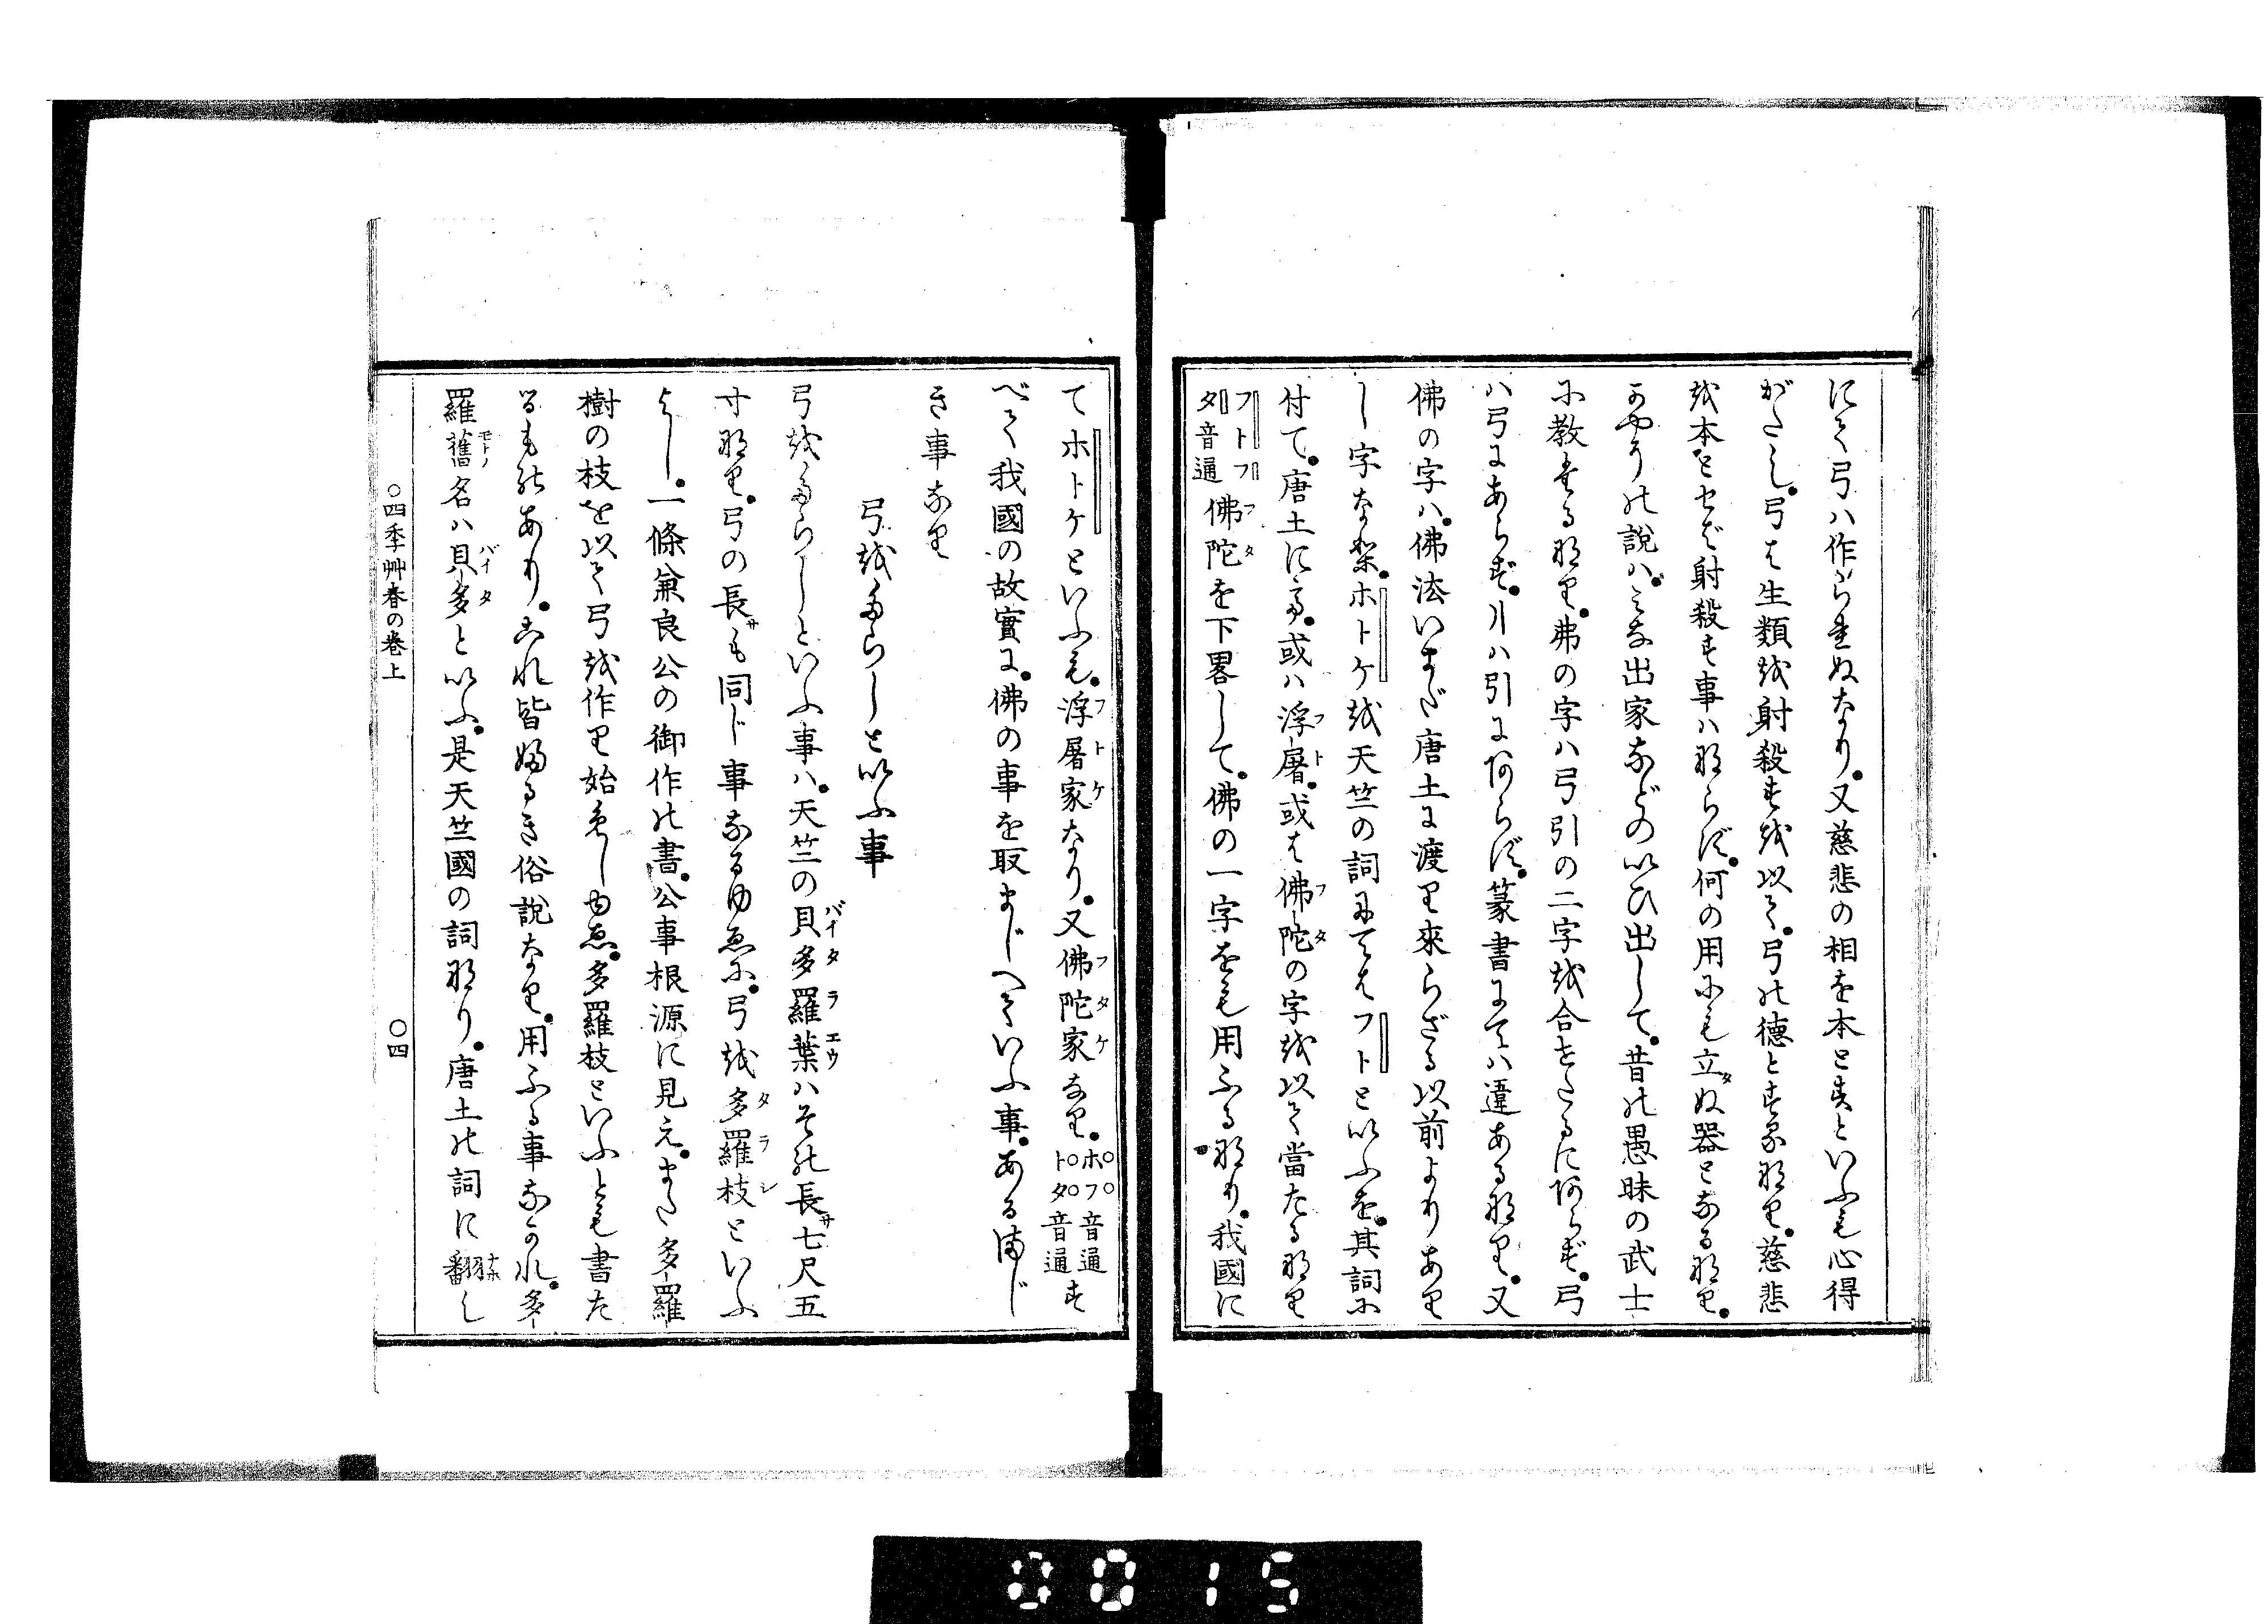 にて弓ハ作られぬなり。又慈悲の相を本とすといふも心得
がたし。弓は生類を射殺すを以て。弓の徳とする なり。慈悲
を本とせば射殺す事ハならず。何の用にも立ぬ器となるなり。
かやうの説ハ。みな出家などのいひ出して。昔の愚昧の武士
に教たるなり。弗の字ハ弓引の二字を合せたるにあらず。弓
ハ弓にあらず。丨ハ引にあらず。篆書にてハ違あるなり。又
佛の字ハ。佛法いまだ唐土に渡り來らざる以前よりあり
し字なり。ホトケを天竺の詞にてはフトといふを。其詞に
付て。唐土にて。或ハ浮屠。或は佛陀の字を以て當たるなり
フトフタ音通佛陀を下畧して。佛の一字をも用ふるなり。我國に
てホトケといふも。浮屠家なり。又佛陀家なり。ホフ音通トタ音通す
べて我國の故實に。佛の事を取まじへていふ事。あるまじ
き事なり
弓をたらしといふ事
弓をたらしといふ事ハ。天竺の貝多羅葉ハその長サ七尺五
寸なり。弓の長サも同じ事なるゆゑに。弓を多羅枝といふ
よし。一條兼良公の御作の書。公事根源に見え。また多羅
樹の枝を以て弓を作り始めしゆゑ。多羅枝といふとも書た
るものあり。これ皆あるき俗説なり。用ふる事なかれ。多
羅舊名ハ貝多といふ。是天竺國の詞なり。唐土の詞に翻し
○四季艸春の巻上
○四
0015